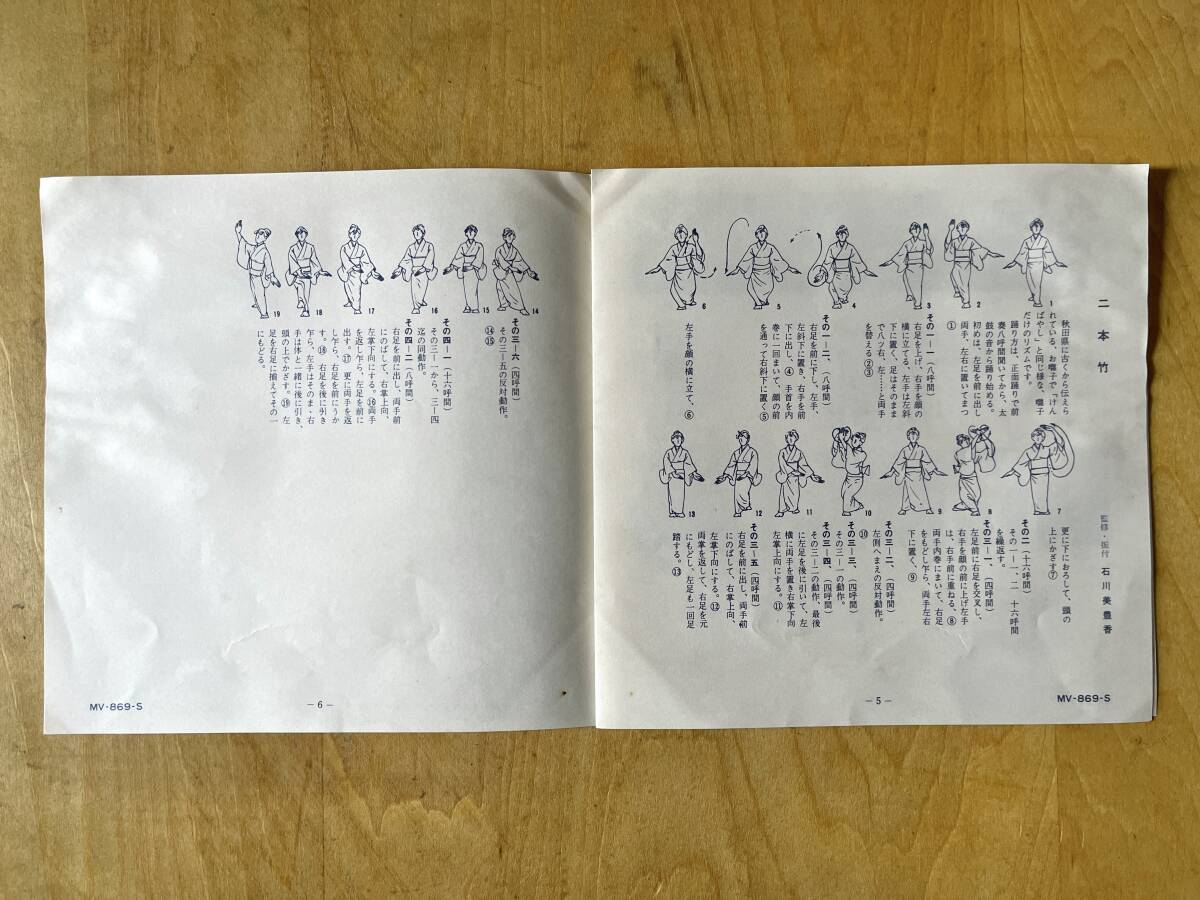 二本竹
監修・振付 石川美豊香
秋田県に古くから伝えら
れている、お囃子で「けん
ばやし」と同じ様な、囃子
だけのリズムです。
踊り方は、正面踊りで前
奏八呼間聞いてから、太
鼓の音から踊り始める。
初めは、左足を前に出し
両手、左右に置いてまつ
①
その一ー一（八呼間）
右足を上げ、右手を顔の
横に立てる、左手は左斜
下に置く、足はそのまま
で八ッ右、左……と両手
を替える②③
その一ー二、（八呼間）
右足を前に下し、左手、
左斜下に置き、右手を前
下に出し、④手首を内
巻に一回まいて、顔の前
を通って右斜下に置く⑤
左手を顔の横に立て、⑥
1
2
3
4
5
6
更に下におろして、頭の
上にかざす⑦
その二（十六呼間）
その一ー一、二 十六呼間
を繰返す。
その三ー一、（四呼間）
左足前に右足を交叉し、
右手を顔の前に上げ左手
は、右手前に重ねる、⑧
両手内巻にまいて、右足
をもどし乍ら、両手左右
下に置く、⑨
その三ー二、（四呼間）
左側へまえの反対動作。
⑩
その三ー三、（四呼間）
その三ー一の動作。
その三ー四、（四呼間）
その三ー二の動作、最後
に左足を後に引いて、左
横に両手を置き右掌下向
左掌上向にする。⑪
その三ー五（四呼間）
右足を前に出し、両手前
にのばして、右掌上向、
左掌下向にする。⑫
両掌を返して、右足を元
にもどし、左足も一回足
踏する。⑬
7
8
9
10
11
12
13
MV-869-S
－5－
14
15
16
17
18
19
その三ー六（四呼間）
その三ー五の反対動作。
⑭⑮
その四ー一（十六呼間）
その三ー一から、三ー四
迄の同動作。
その四ー二（八呼間）
右足を前に出し、両手前
にのばして、右掌上向、
左掌下向にする。⑯両手
を返し乍ら、左足を前に
出す。⑰更に両手を返
し乍ら、右足を前にうか
す。⑱右足を後に引き
乍ら、左手はそのまゝ右
手は体と一緒に後に引き、
頭の上でかざす。⑲左
足を右足に揃えてその一
にもどる。
－6－
MV-869-S